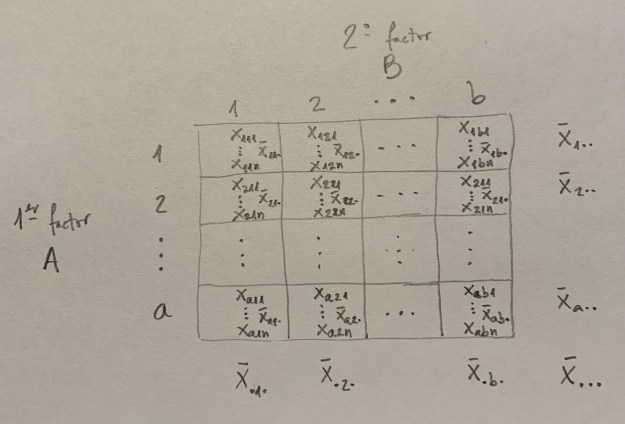 2º factor
B
1 2 ... b
1 X111 ⋮ X̄11. X11n X121 ⋮ X̄12. X12n ... X1b1 ⋮ X̄1b. X1bn X̄1..
1er factor
A
2 X211 ⋮ X̄21. X21n X221 ⋮ X̄22. X22n ... X211 ⋮ X̄21. X21n X̄2..
⋮ ⋮ ⋮ ⋮ ⋮
a Xa11 ⋮ X̄a1. Xa1n Xa21 ⋮ X̄a2. Xa2n ... Xab1 ⋮ X̄ab. Xabn X̄a..
X̄.1. X̄.2. X̄.b. X̄...